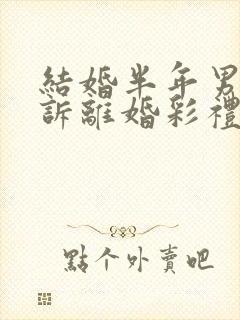 結婚半年男
訴離婚彩禮
點个外賣吧